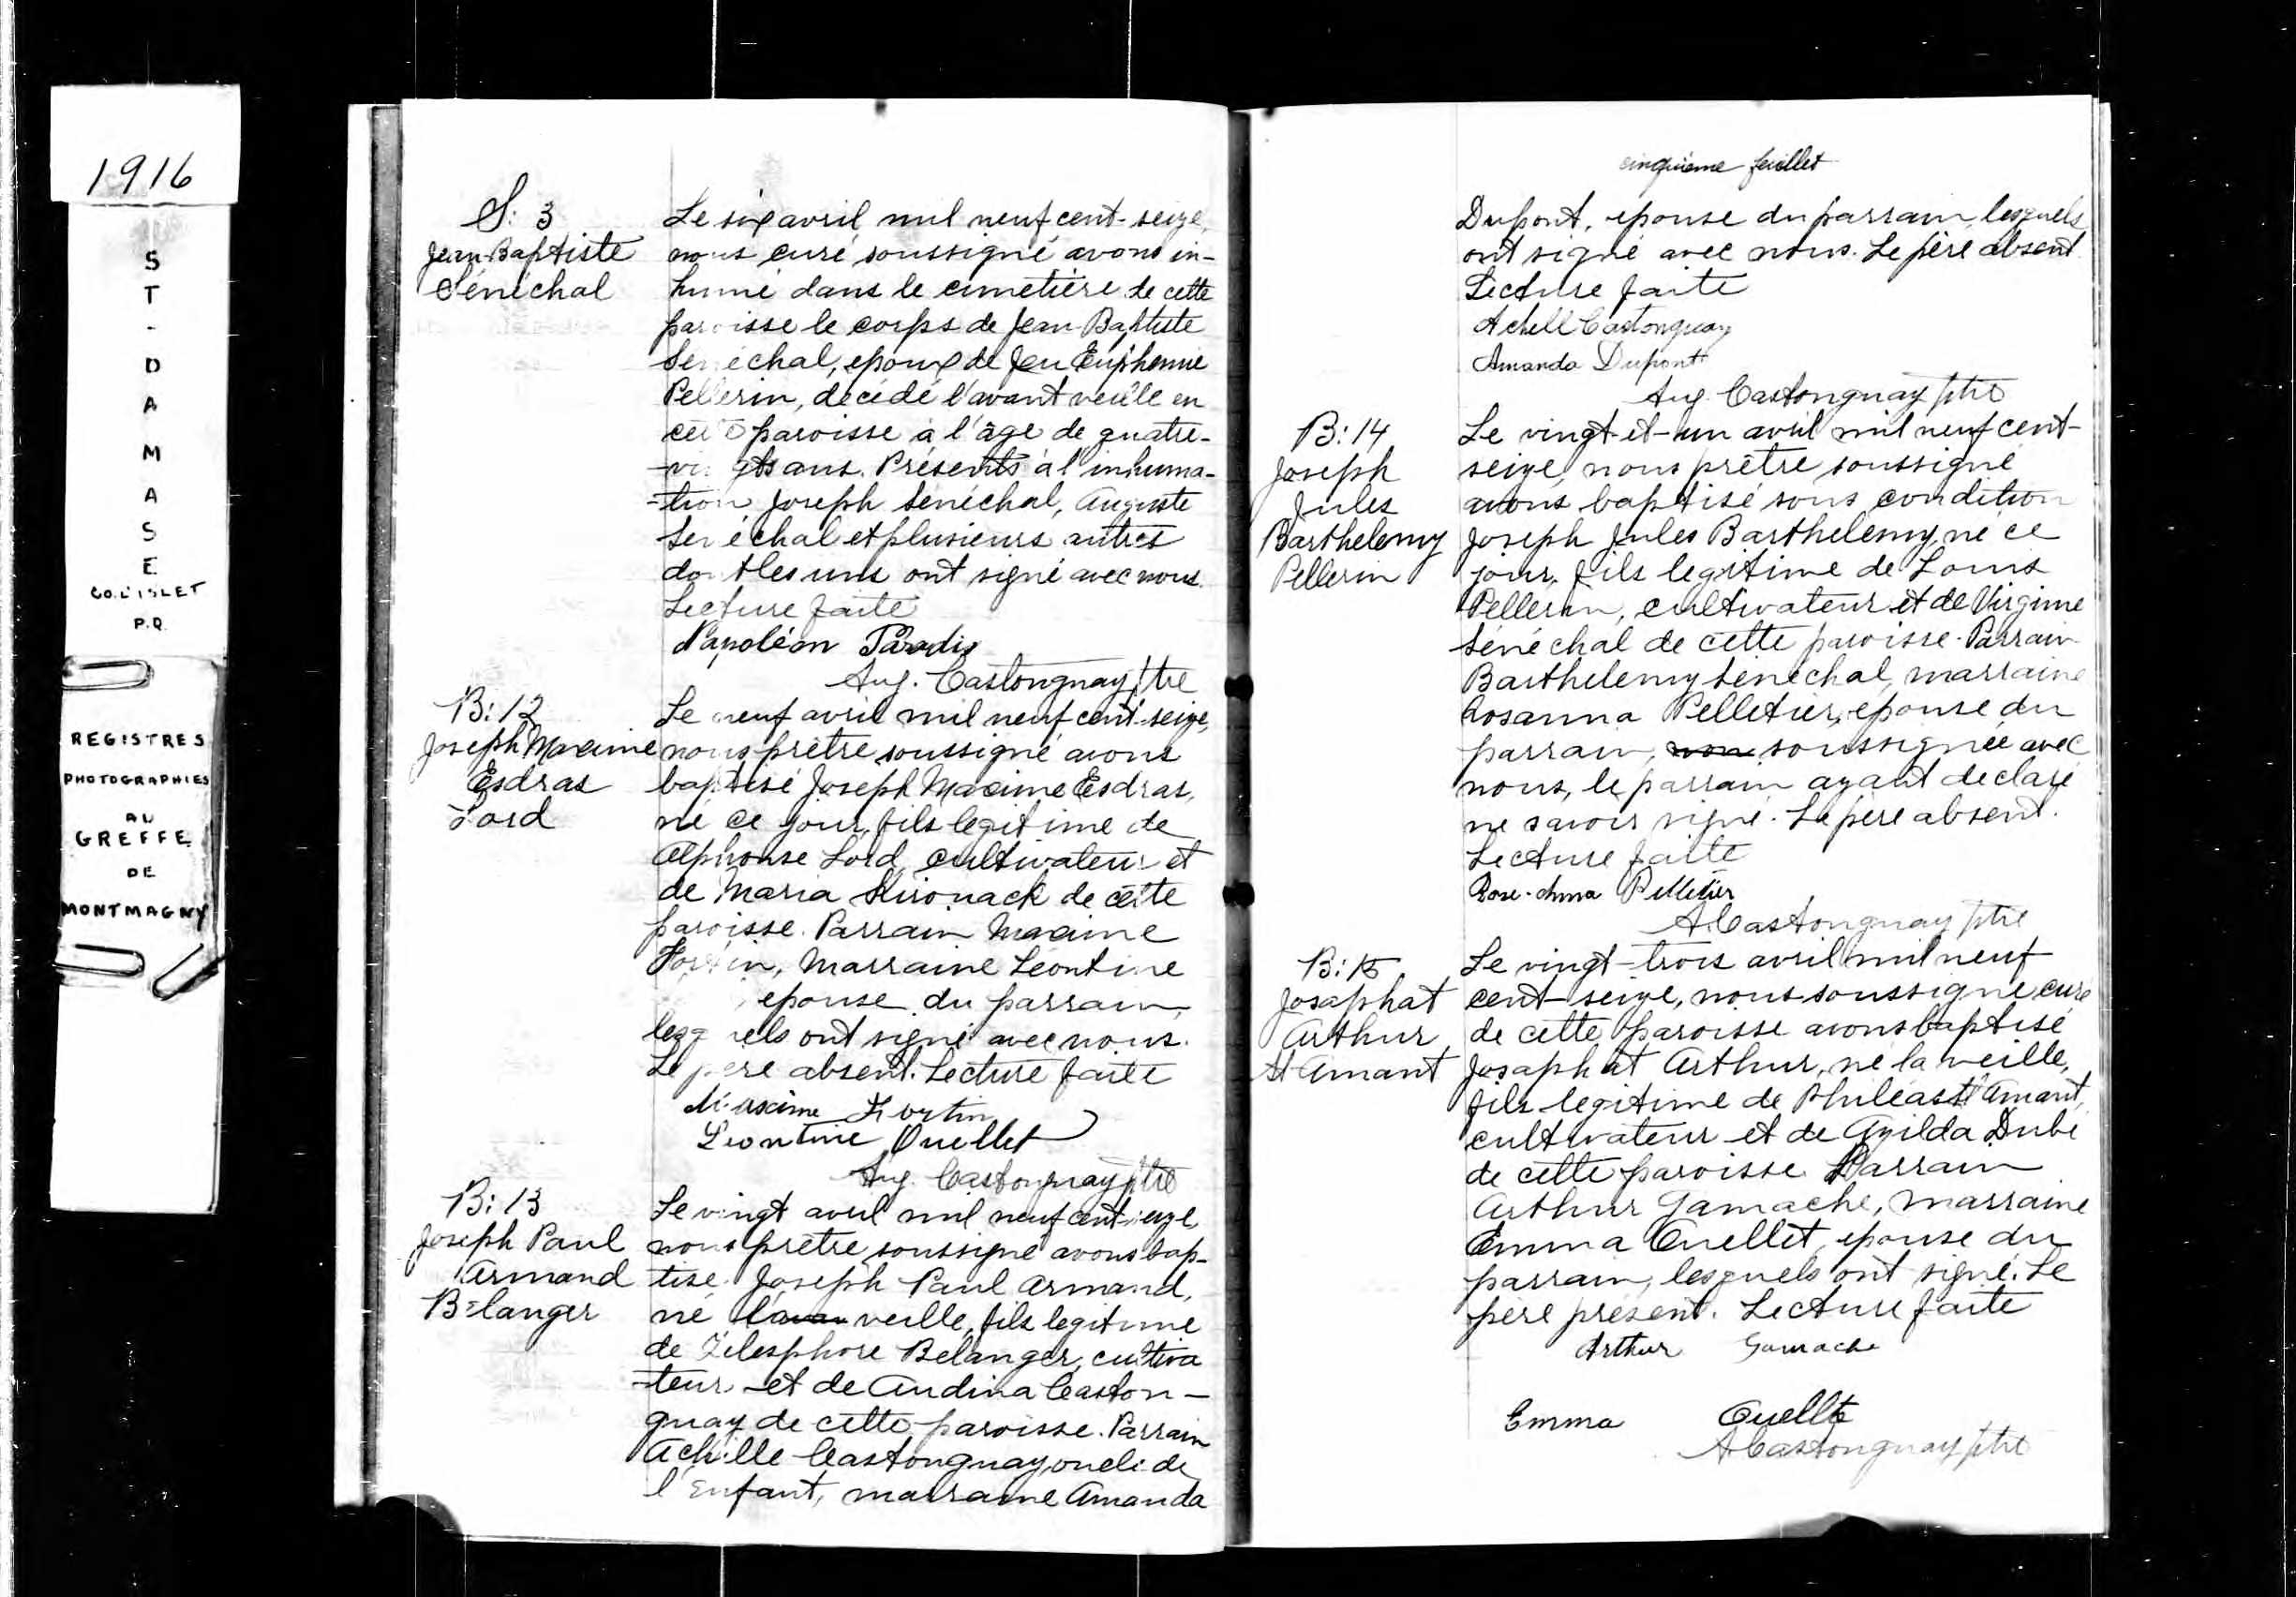 1916
ST-DAMASE
CO. L'ISLET
P.Q.
REGISTRES
PHOTOGRAPHIES
AU
GREFFE
DE
MONTMAGNY
S: 3
Jean-Baptiste
Sénéchal
Le six avril mil neuf cent-seize,
nous curé soussigné avons in-
humé dans le cimetière de cette
paroisse le corps de Jean-Baptiste
Sénéchal, epoux de feu Euphemie
Pellerin, décédé l'avant veille en
cette paroisse à l'âge de quatre-
-vingts ans. Présents à l'inhuma-
-tion Joseph Sénéchal, Auguste
Sénéchal et plusieurs autres
dont les uns ont signé avec nous.
Lecture faite
Napoléon Paradis
Aug. Castonguay ptre
B: 12
Joseph Maxime
Esdras
Lord
Le neuf avril mil neuf cent-seize,
nous prêtre soussigné avons
baptisé Joseph Maxime Esdras,
né ce jour, fils legitime de
Alphonse Lord, cultivateur et
de Maria Kironack de cette
paroisse. Parrain Maxime
Fortin, Marraine Leontine
epouse du parrain,
lesquels ont signé avec nous.
Le père absent. Lecture faite
Maxime Fortin
Leontine Ouellet
Aug. Castonguay ptre
B: 13
Joseph Paul
Armand
Bélanger
Le vingt avril mil neuf cent-seize,
nous prêtre soussigné avons bap-
tisé Joseph Paul Armand,
né la veille, fils legitime
de Télesphore Belanger, cultiva
-teur et de Audina Caston-
guay de cette paroisse. Parrain
Achille Castonguay oncle de
l'Enfant, marraine Amanda
cinquième feuillet
Dupont, epouse du parrain, lesquels
ont signé avec nous. Le père absent
Lecture faite
Achell Castonguay
Amanda Dupont
Aug. Castonguay ptre
B: 14
Joseph
Jules
Barthelemy
Pellerin
Le vingt-et-un avril mil neuf cent-
seize, nous prêtre soussigné
avons baptisé sous condition
Joseph Jules Barthélemy, né ce
jour, fils legitime de Louis
Pellerin, cultivateur et de Virginie
Sénéchal de cette paroisse. Parrain
Barthelemy Sénéchal, marraine
Rosanna Pelletier, epouse du
parrain, non soussignée avec
nous, le parrain ayant declaré
ne savoir signé. Le père absent.
Lecture faite
Rose-Anna Pelletier
A. Castonguay ptre
B: 15
Josaphat
Arthur
St Amant
Le vingt-trois avril mil neuf
cent-seize, nous soussigné curé
de cette paroisse avons baptisé
Josaphat Arthur, né la veille,
fils legitime de Philéas St Amant,
cultivateur et de Azilda Dubé
de cette paroisse Parrain
Arthur Gamache, marraine
Emma Ouellet, epouse du
parrain, lesquels ont signé. Le
père présent. Lecture faite
Arthur Gamache
Emma Ouellte
A Castonguay ptre